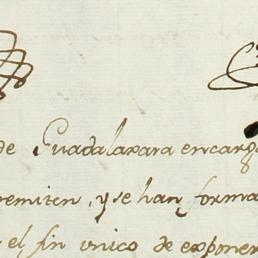 de Guadalaxara encarg
remiten, y se han forma
el fin unico de exponer